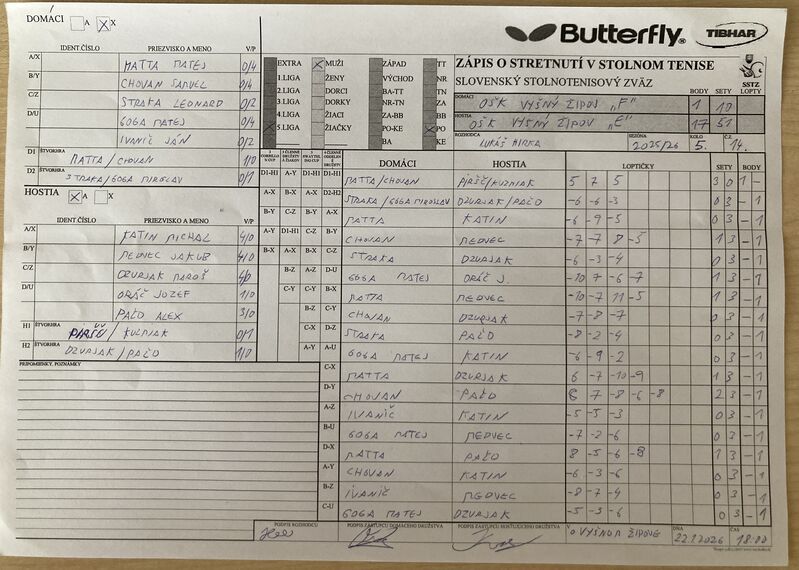 DOMÁCI A X
Butterfly
TIBHAR
IDENT.ČÍSLO PRIEZVISKO A MENO V/P
A/X MATTA MATEJ 0/4
B/Y CHOVAN SAMUEL 0/4
C/Z STRAKA LEONARD 0/2
D/U GOGA MATEJ 0/4
IVANIČ JÁN 0/2
D1 ŠTVORHRA MATTA/CHOVAN 1/0
D2 ŠTVORHRA STRAKA/GOGA MIROSLAV 0/1
HOSTIA X A X
IDENT.ČÍSLO PRIEZVISKO A MENO V/P
A/X KATIN MICHAL 4/0
B/Y MEDVEC JAKUB 4/0
C/Z DZURJAK MAROŠ 4/0
D/U ORÁČ JOZEF 1/0
PAĽO ALEX 3/0
H1 ŠTVORHRA PIRŠČ/KUZNIAK 0/1
H2 ŠTVORHRA DZURJAK/PAĽO 1/0
PRIPOMIENKY, POZNÁMKY
EXTRA X MUŽI ZÁPAD TT
1.LIGA ŽENY VÝCHOD NR
2.LIGA DORCI BA-TT TN
3.LIGA DORKY NR-TN ZA
4.LIGA ŽIACI ZA-BB BB
5.LIGA ŽIAČKY PO-KE X PO
BA KE
ZÁPIS O STRETNUTÍ V STOLNOM TENISE
SLOVENSKÝ STOLNOTENISOVÝ ZVÄZ
SSTZ
BODY SETY LOPTY
DOMÁCI OŠK VYŠNÝ ŽIPOV "F" 1 10
HOSTIA OŠK VYŠNÝ ŽIPOV "E" 17 51
ROZHODCA LUKÁŠ HIRKA SEZÓNA 2025/26 KOLO 5. Č.Z. 14.
DOMÁCI HOSTIA LOPTIČKY SETY BODY
D1-H1 A-Y D1-H1 D1-H1 MATTA/CHOVAN PIRŠČ/KUZNIAK 5 7 5 3 0 1 -
A-X B-X A-X D2-H2 STRAKA/GOGA MIROSLAV DZURJAK/PAĽO -6 -6 -3 0 3 - 1
B-Y C-Z B-Y A-X MATTA KATIN -6 -9 -5 0 3 - 1
A-Y D1-H1 C-Z B-Y CHOVAN MEDVEC -7 -7 8 -5 1 3 - 1
B-X A-X B-X C-Z STRAKA DZURJAK -6 -3 -4 0 3 - 1
B-Z A-Z D-U GOGA MATEJ ORÁČ J. -10 7 -6 -7 1 3 - 1
C-Y C-Y B-X MATTA MEDVEC -10 -7 11 -5 1 3 - 1
B-Z C-Y CHOVAN DZURJAK -7 -8 -7 0 3 - 1
C-X D-Z STRAKA PAĽO -8 -2 -4 0 3 - 1
A-Y A-U GOGA MATEJ KATIN -6 -9 -2 0 3 - 1
C-X MATTA DZURJAK 6 -7 -10 -9 1 3 - 1
D-Y CHOVAN PAĽO 6 7 -8 -6 -8 2 3 - 1
A-Z IVANIČ KATIN -5 -5 -3 0 3 - 1
B-U GOGA MATEJ MEDVEC -7 -2 -6 0 3 - 1
D-X MATTA PAĽO 8 -5 -6 -8 1 3 - 1
A-Y CHOVAN KATIN -6 -3 -6 0 3 - 1
B-Z IVANIČ MEDVEC -8 -7 -4 0 3 - 1
C-U GOGA MATEJ DZURJAK -5 -3 -6 0 3 - 1
PODPIS ROZHODCU PODPIS ZÁSTUPCU DOMÁCEHO DRUŽSTVA PODPIS ZÁSTUPCU HOSŤUJÚCEHO DRUŽSTVA V VYŠNOM ŽIPOVE DŇA 22.1.2026 ČAS 18:00